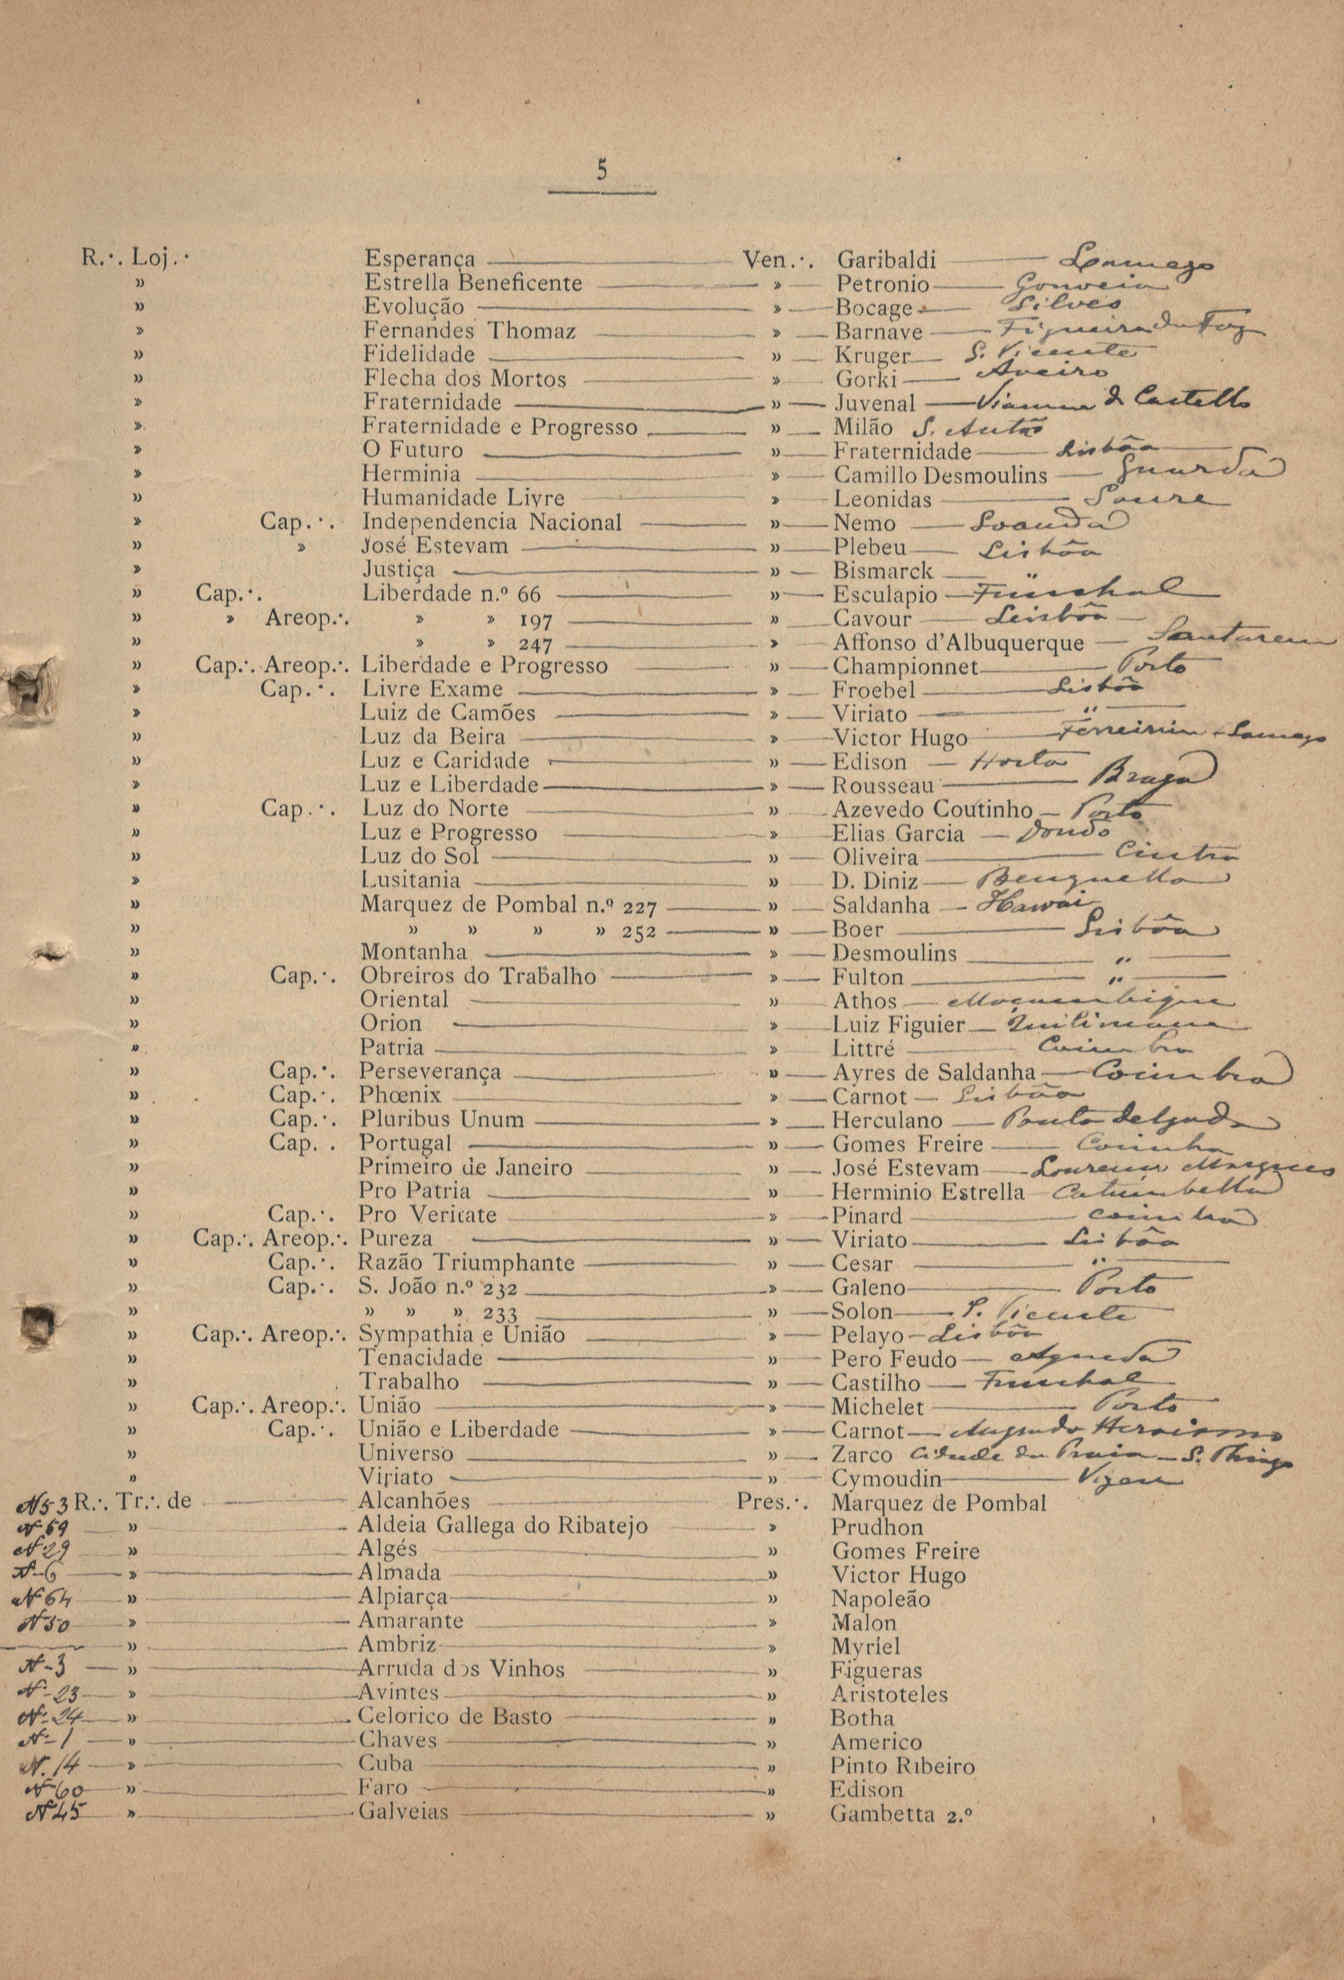 5
R.·. Loj.·. Esperança Ven.·. Garibaldi Lamego
» Estrella Beneficente » Petronio Gouveia
» Evolução » Bocage Silves
» Fernandes Thomaz » Barnave Figueira da Foz
» Fidelidade » Kruger S. Vicente
» Flecha dos Mortos » Gorki Aveiro
» Fraternidade » Juvenal Vianna d Castello
» Fraternidade e Progresso » Milão S. Antão
» O Futuro » Fraternidade Lisbôa
» Herminia » Camillo Desmoulins Guarda
» Humanidade Livre » Leonidas Soure
» Cap.·. Independencia Nacional » Nemo Loanda
» » José Estevam » Plebeu Lisbôa
» Justiça » Bismarck "
» Cap.·. Liberdade n.º 66 » Esculapio Funchal
» » Areop.·. » » 197 » Cavour Lisbôa
» » » 247 » Affonso d'Albuquerque Santarem
» Cap.·. Areop.·. Liberdade e Progresso » Championnet Porto
» Cap.·. Livre Exame » Froebel Lisbôa
» Luiz de Camões » Viriato "
» Luz da Beira » Victor Hugo Ferreirim - Lamego
» Luz e Caridade » Edison Horta
» Luz e Liberdade » Rousseau Braga
» Cap.·. Luz do Norte » Azevedo Coutinho Porto
» Luz e Progresso » Elias Garcia Dondo
» Luz do Sol » Oliveira Cintra
» Lusitania » D. Diniz Benguella
» Marquez de Pombal n.º 227 » Saldanha Hawai
» » » » » 252 » Boer Lisbôa
» Montanha » Desmoulins "
» Cap.·. Obreiros do Trabalho » Fulton "
» Oriental » Athos Moçambique
» Orion » Luiz Figuier Quilimane
» Patria » Littré Coimbra
» Cap.·. Perseverança » Ayres de Saldanha Coimbra
» Cap.·. Phœnix » Carnot Lisbôa
» Cap.·. Pluribus Unum » Herculano Ponta Delgada
» Cap. . Portugal » Gomes Freire Coimbra
» Primeiro de Janeiro » José Estevam Lourenço Marques
» Pro Patria » Herminio Estrella Catumbella
» Cap.·. Pro Veritate » Pinard Coimbra
» Cap.·. Areop.·. Pureza » Viriato Lisbôa
» Cap.·. Razão Triumphante » Cesar "
» Cap.·. S. João n.º 232 » Galeno Porto
» » » » 233 » Solon S. Vicente
» Cap.·. Areop.·. Sympathia e União » Pelayo Lisbôa
» Tenacidade » Pero Feudo Agueda
» Trabalho » Castilho Funchal
» Cap.·. Areop.·. União » Michelet Porto
» Cap.·. União e Liberdade » Carnot Angra do Heroismo
» Universo » Zarco Cidade da Praia - S. Thiago
» Viriato » Cymoudin Vizeu
Nº 53 R.·. Tr.·. de Alcanhões Pres.·. Marquez de Pombal
Nº 69 » Aldeia Gallega do Ribatejo » Prudhon
Nº 29 » Algés » Gomes Freire
Nº 6 » Almada » Victor Hugo
Nº 64 » Alpiarça » Napoleão
Nº 50 » Amarante » Malon
» Ambriz » Myriel
Nº 3 » Arruda dos Vinhos » Figueras
Nº 23 » Avintes » Aristoteles
Nº 24 » Celorico de Basto » Botha
Nº 1 » Chaves » Americo
Nº 14 » Cuba » Pinto Ribeiro
Nº 60 » Faro » Edison
Nº 45 » Galveias » Gambetta 2.º